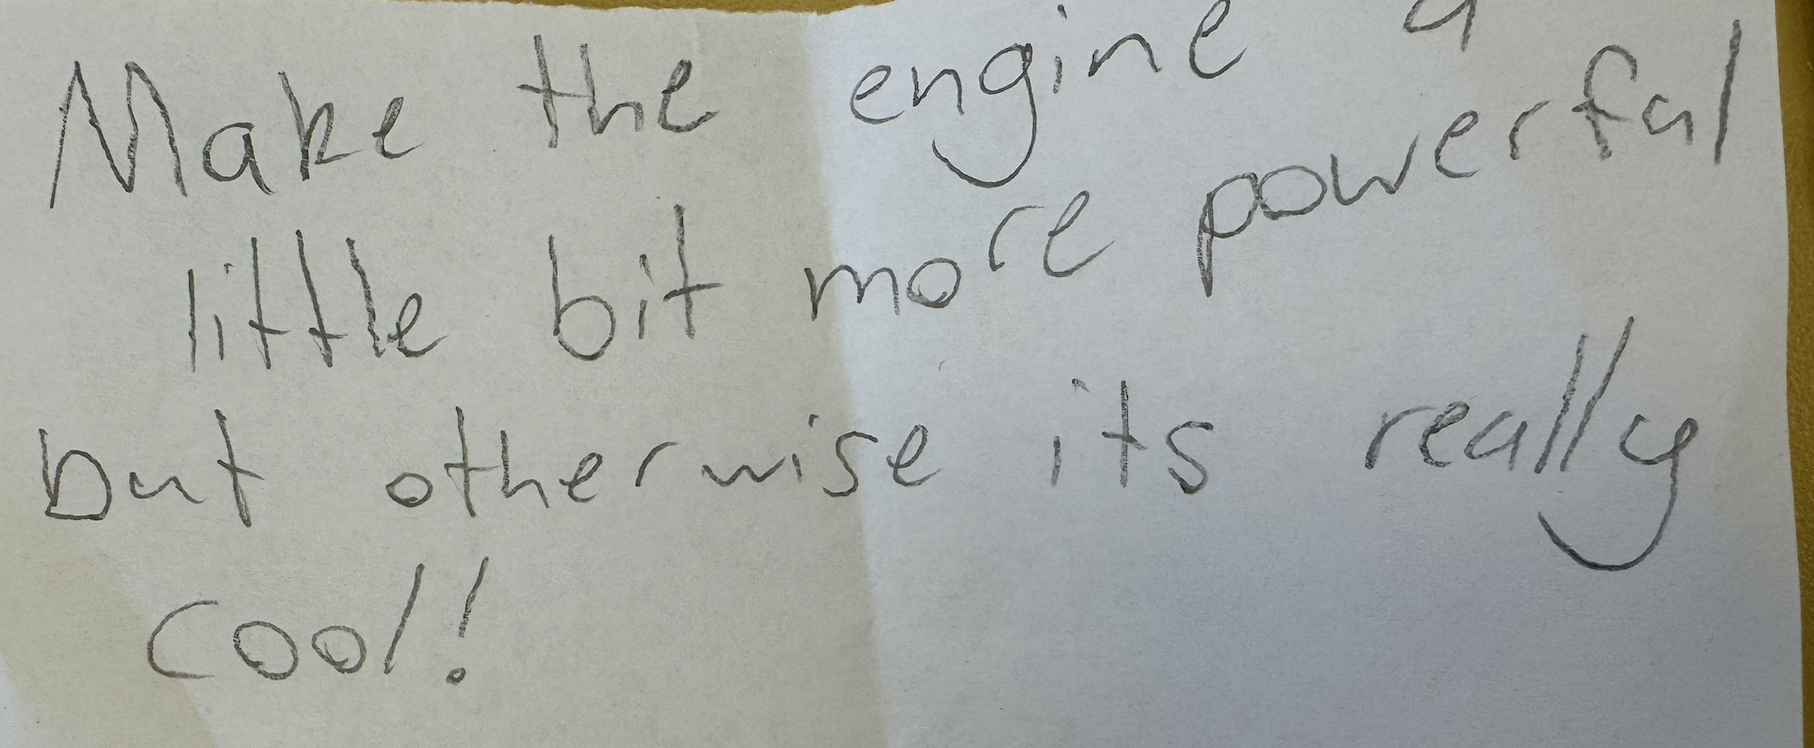 Make the engine a
little bit more powerful
but otherwise its really
cool!